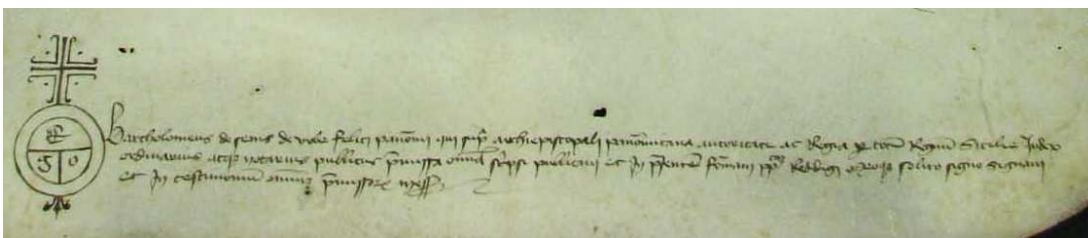 E
g o
Bartholomeus de senis de urbe felici panormi qui supra archiepiscopali panormitana autoritate ac Regia per totum Regnum Sicilie Judex
ordinarius atque notarius publicus premissa omnia scripsi publicavi et in presentem formam redegi meoque solito signo signavi
et in testimonium omnium premissorum